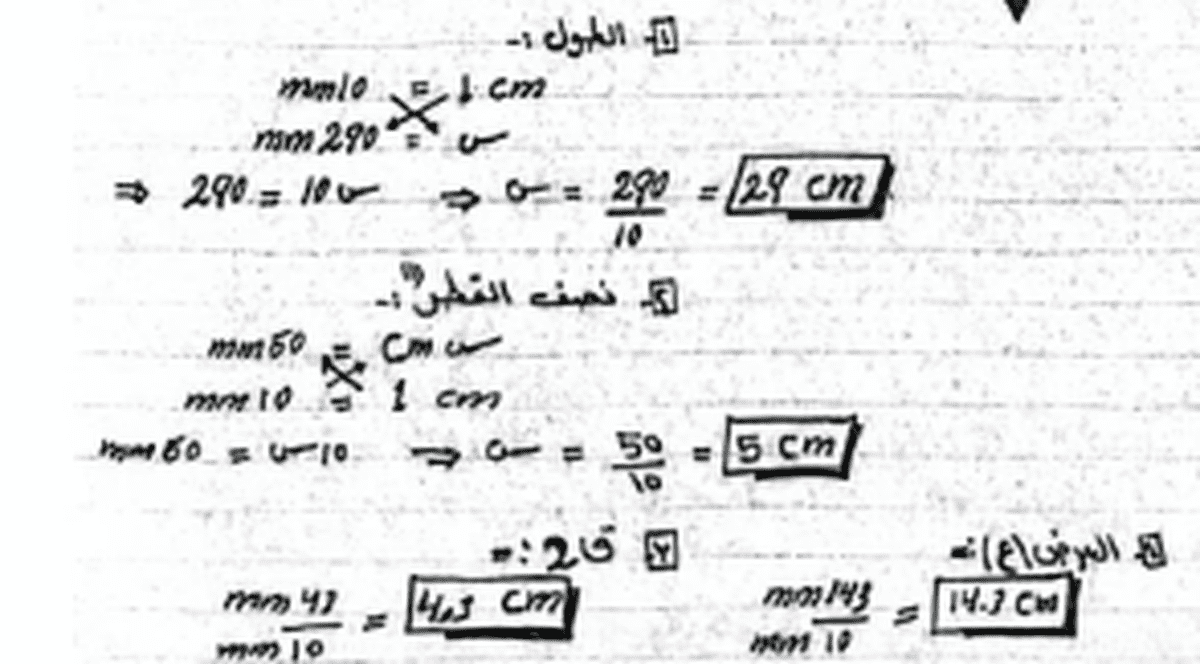 1- الطول :-
mm10 = 1 cm
mm290 = س
⇒ 290 = 10س ⇒ س = 290/10 = 29 cm
2- نصف القطر :-
mm50 = cm س
mm10 = 1 cm
mm50 = س10 ⇒ س = 50/10 = 5 cm
العرض (ع) :-
mm143 / mm10 = 14.3 cm
ق2 :-
mm43 / mm10 = 4.3 cm